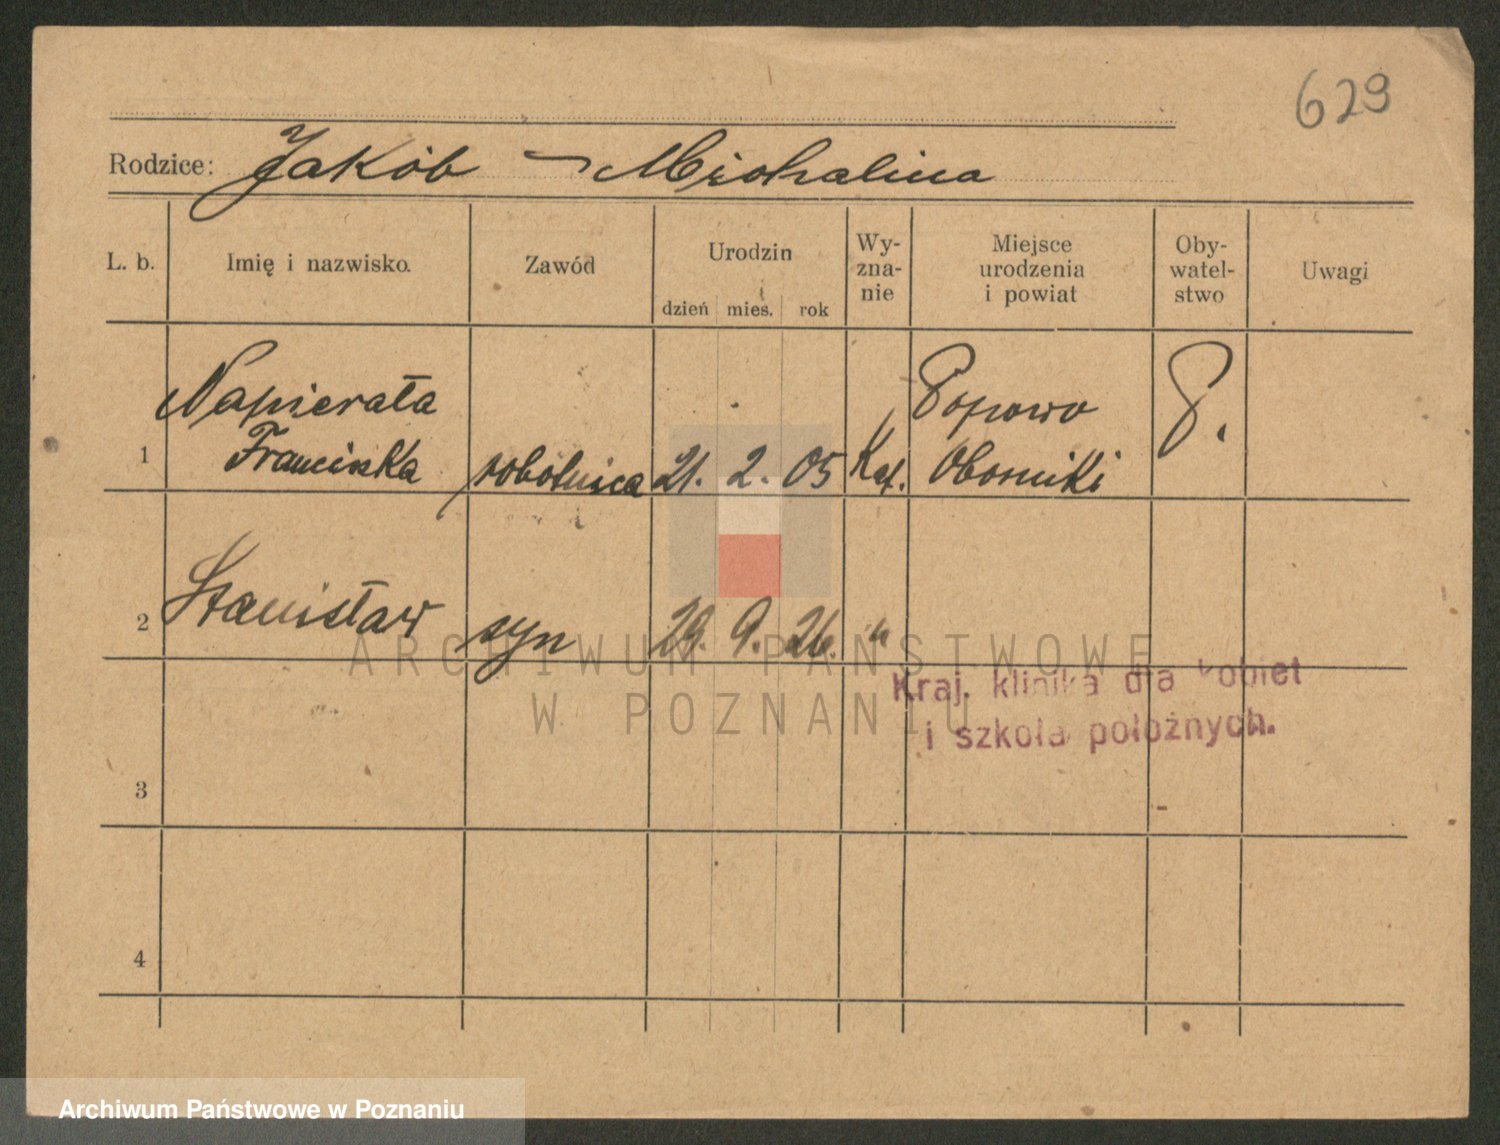 629
Rodzice: Jakób - Michalina
L. b. Imię i nazwisko. Zawód Urodzin dzień mies. rok Wy-zna-nie Miejsce urodzenia i powiat Oby-watel-stwo Uwagi
Napierała Popowo P.
1 Franciszka robotnica 21. 2. 05 Kat. Oborniki
2 Stanisław syn 29. 9. 26. "
ARCHIWUM PAŃSTWOWE
W POZNANIU
Kraj. klinika dla kobiet
i szkoła położnych.
3
4
Archiwum Państwowe w Poznaniu